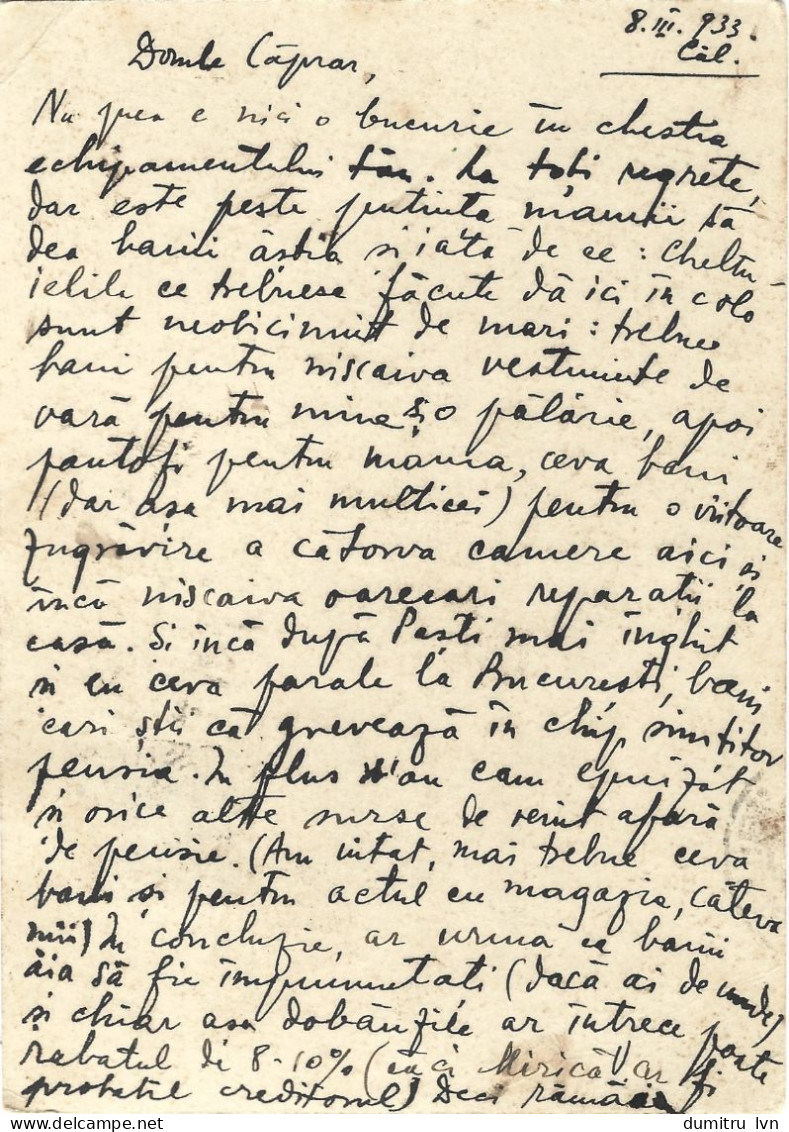 8.III.933.
Căl.
Domle Căprar,
Nu prea e nici o bucurie în chestia
echipamentului tău. Cu toți regrete,
dar este peste putința mamii să
dea banii ăstia si iată de ce: Cheltu-
ielile ce trebuesc făcute dă ici în colo
sunt neobicinuit de mari: trebue
bani pentru niscaiva vestminte de
vară pentru mine & o pălărie, apoi
pantofi pentru mama, ceva bani
(dar asa mai multicei) pentru o viitoare
zugrăvire a câtorva camere aici si
încă niscaiva oarecari reparatii la
casă. Si încă după Pasti mai înghit
si eu ceva parale la București, bani
cari știi că grevează în chip simtitor
pensia. In plus s'au cam epuizat
si orice alte surse de venit afară
de pensie. (Am uitat, mai trebue ceva
bani și pentru actul cu magazia, câteva
mii) In concluzie, ar urma ca banii
ăia să fie împrumutati (dacă ai de unde)
si chiar asa dobânzile ar întrece poate
rabatul de 8-10% (căci Mirică ar fi
probabil creditorul) Deci rămâne
dumitru lvn